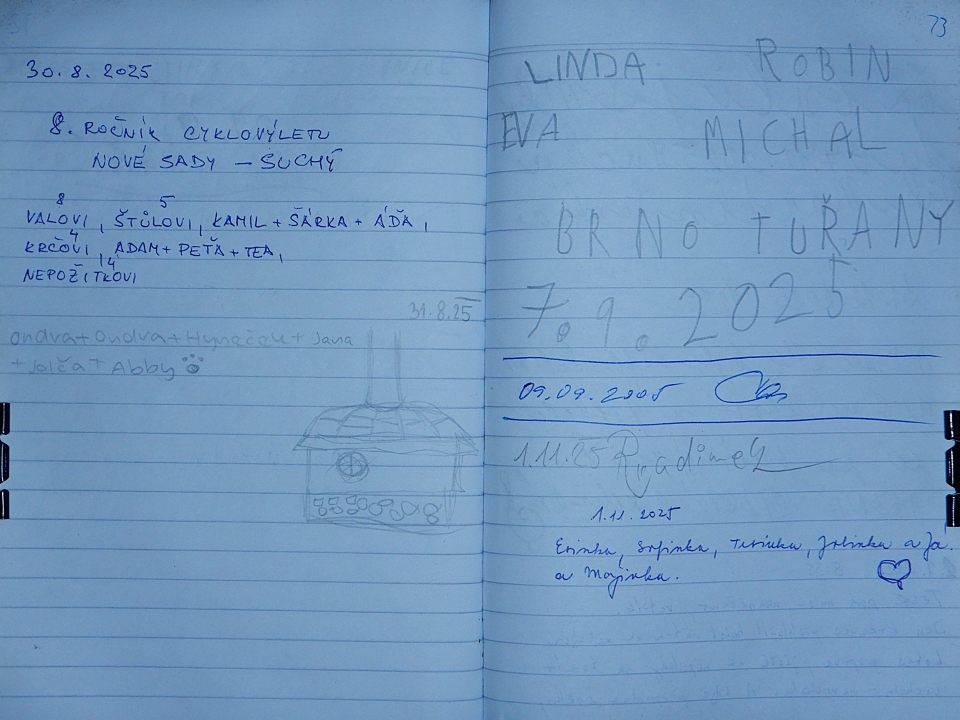 30.8.2025
8. ROČNÍK CYKLOVÝLETU
NOVÉ SADY – SUCHÝ
8 5
VALOVI, ŠTŮLOVI, KAMIL + ŠÁRKA + ÁĎA,
4
KRČOVI, ADAM + PEŤA + TEA,
14
NEPOŽITKOVI
31.8.25
Ondra + Ondra + Hyneček + Jana
+ Jolča + Abby
73
LINDA ROBIN
EVA MICHAL
BRNO TUŘANY
7.9.2025
09.09.2005
1.11.25 Radimek
1.11.2025
a Já
a Majinka.